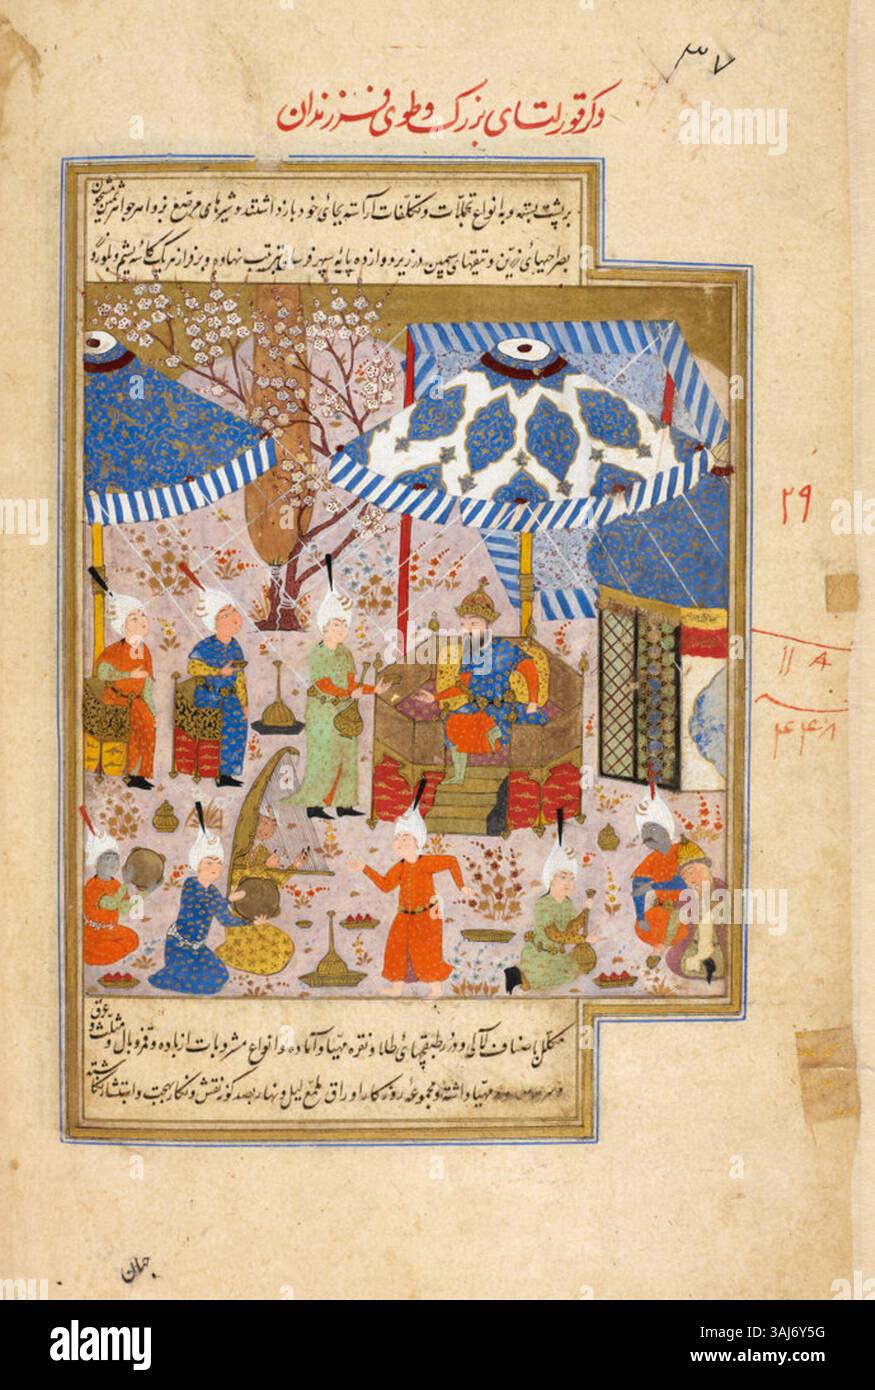 ۳۷
ذکر قورلتای بزرگ و طوی فرزندان
بر پشت بسته و به انواع تجملات و تکلفات آراسته بجای خود باز داشتند و شیرهای مرصع بزواهر جواهر ثمین مشحون
بصراحیهای زرین و تنقیهای سیمین در زیر و دوازده پایه سپهر فرسای بترتیب نهاده و بر فراز هر یک کاسه یشم و بلور
۲۹
۱۱۸
۴۴۰۸
مکلل باصناف لآلی و درر طبقچهای طلا و نقره مهیا و آماده و انواع مشروبات از باده و قمز و بال و مثلث و عرق
مهیا داشته و مجموعه روزگار اوراق ملمع لیل و نهار بصد گونه نقش و نگار بهجت و استبشار نگاشته
alamy
Image ID: 3AJ6Y5G
www.alamy.com